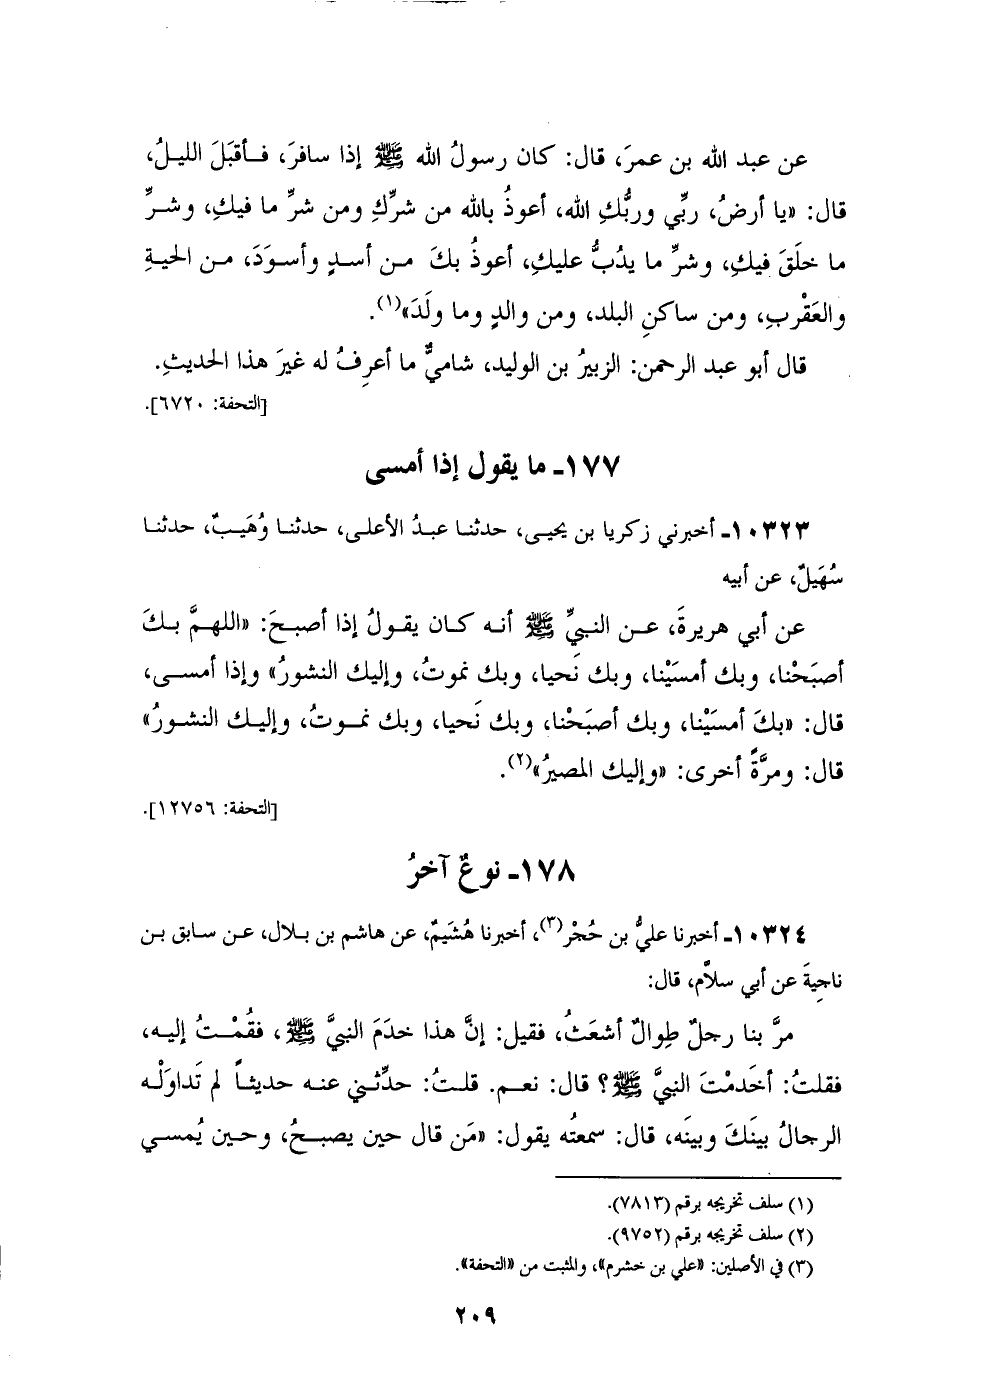 عن عبد الله بن عمرَ، قال: كان رسولُ الله ﷺ إذا سافرَ، فأقبَلَ الليلُ،
قال: «يا أرضُ، ربِّي وربُّكِ الله، أعوذُ بالله من شرِّكِ ومن شرِّ ما فيكِ، وشرِّ
ما خلَقَ فيكِ، وشرِّ ما يدُبُّ عليكِ، أعوذُ بكَ من أسدٍ وأسودَ، من الحيةِ
والعَقْربِ، ومن ساكنِ البلد، ومن والدٍ وما ولَدَ»(١).
قال أبو عبد الرحمن: الزبيرُ بن الوليد، شاميٌّ ما أعرِفُ له غيرَ هذا الحديثِ.
[التحفة: ٦٧٢٠].
١٧٧ـ ما يقول إذا أمسى
١٠٣٢٣ـ أخبرني زكريا بن يحيى، حدثنا عبدُ الأعلى، حدثنا وُهَيبٌ، حدثنا
سُهَيلٌ، عن أبيه
عن أبي هريرةَ، عن النبيِّ ﷺ أنه كان يقولُ إذا أصبحَ: «اللهمَّ بكَ
أصبَحْنا، وبك أمسَيْنا، وبك نَحيا، وبك نموتُ، وإليك النشورُ» وإذا أمسى،
قال: «بكَ أمسَيْنا، وبك أصبَحْنا، وبك نَحيا، وبك نموتُ، وإليك النشورُ»
قال: ومرَّةً أخرى: «وإليك المصيرُ»(٢).
[التحفة: ١٢٧٥٦].
١٧٨ـ نوعٌ آخرُ
١٠٣٢٤ـ أخبرنا عليُّ بن حُجْر(٣)، أخبرنا هُشَيمٌ، عن هاشم بن بلال، عن سابق بن
ناجِيةَ عن أبي سلاَّم، قال:
مرَّ بنا رجلٌ طِوالٌ أشعَثُ، فقيل: إنَّ هذا خدَمَ النبيَّ ﷺ، فقُمْتُ إليه،
فقلتُ: أخَدمْتَ النبيَّ ﷺ؟ قال: نعم. قلتُ: حدِّثني عنه حديثاً لم تَداوَلْه
الرجالُ بينَكَ وبينَه، قال: سمعتُه يقول: «مَن قال حين يصبحُ، وحين يُمسي
(١) سلف تخريجه برقم (٧٨١٣).
(٢) سلف تخريجه برقم (٩٧٥٢).
(٣) في الأصلين: «علي بن خشرم»، والمثبت من «التحفة».
٢٠٩